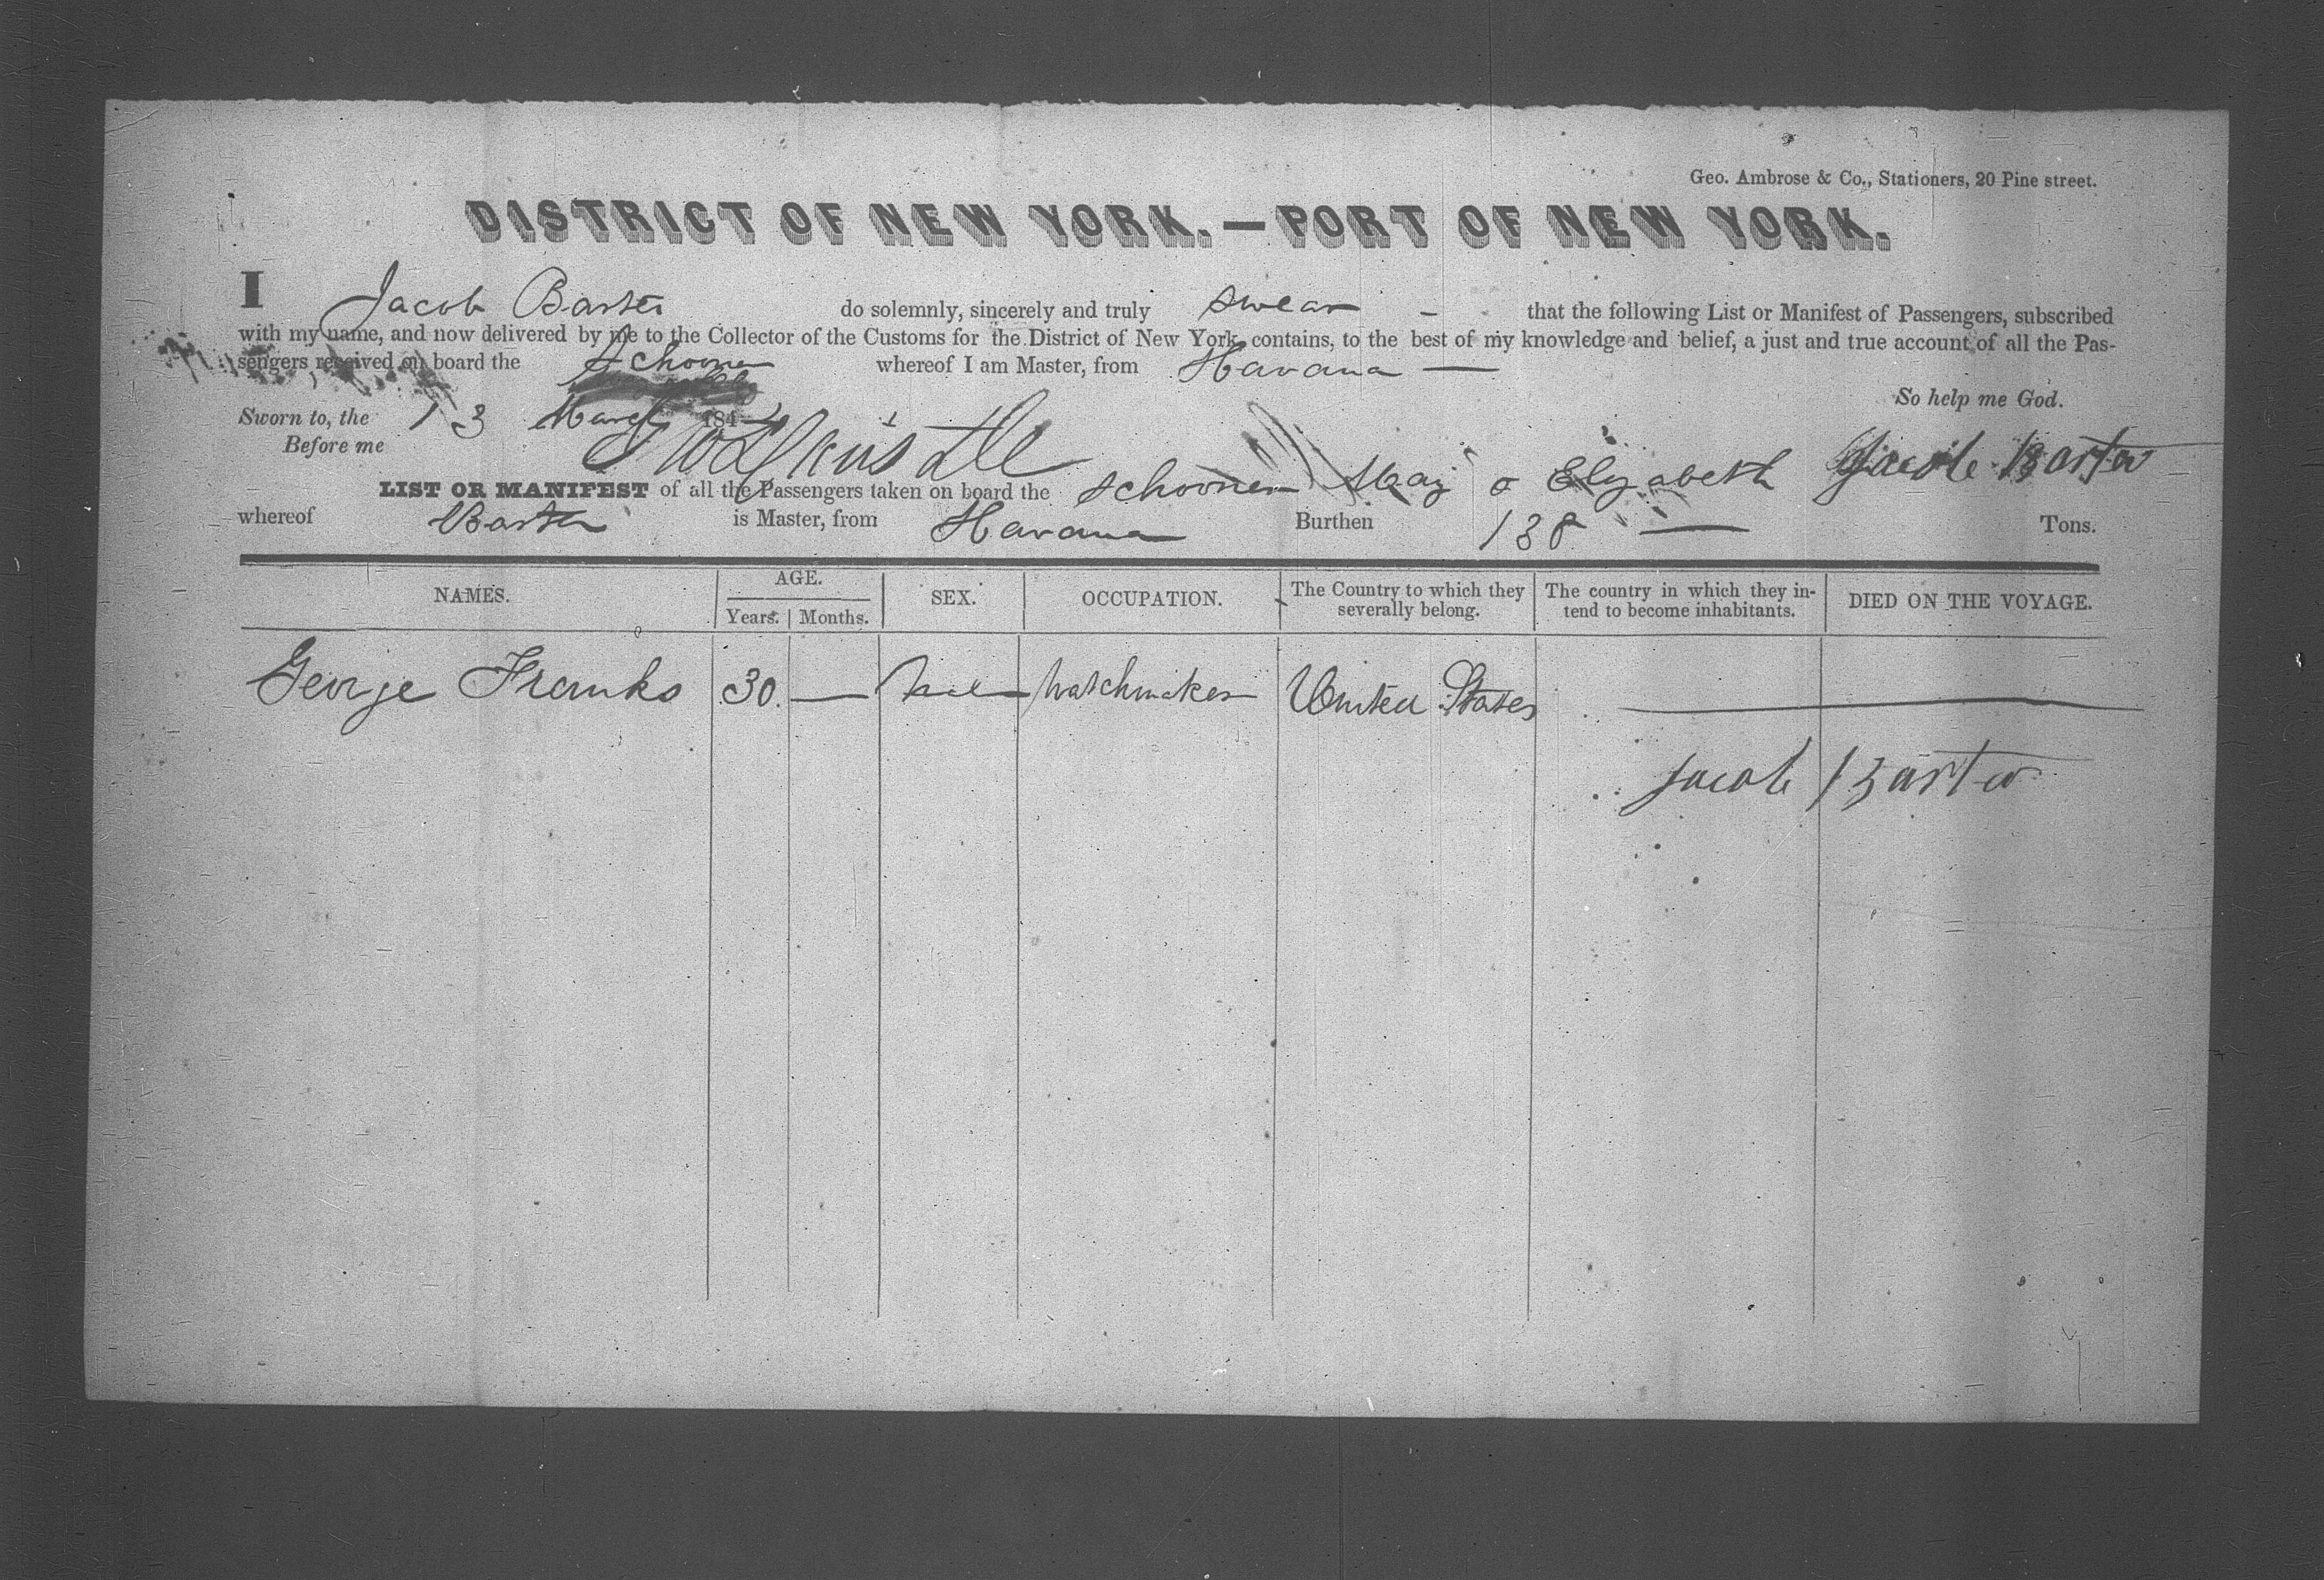 Geo. Ambrose & Co., Stationers, 20 Pine street.
DISTRICT OF NEW YORK.—PORT OF NEW YORK.
I Jacob Barter do solemnly, sincerely and truly swear – that the following List or Manifest of Passengers, subscribed
with my name, and now delivered by me to the Collector of the Customs for the District of New York, contains, to the best of my knowledge and belief, a just and true account of all the Pas-
sengers received on board the Schooner whereof I am Master, from Havana —
So help me God.
Sworn to, the 13 March 184
Before me
Jacob Barter
LIST OR MANIFEST of all the Passengers taken on board the Schooner Mary & Elizabeth
whereof Barter is Master, from Havana Burthen 138 — Tons.
NAMES. AGE. SEX. OCCUPATION. The Country to which they severally belong. The country in which they in- tend to become inhabitants. DIED ON THE VOYAGE.
Years. Months.
George Franks 30. — Male Watchmaker United States —
Jacob Barter